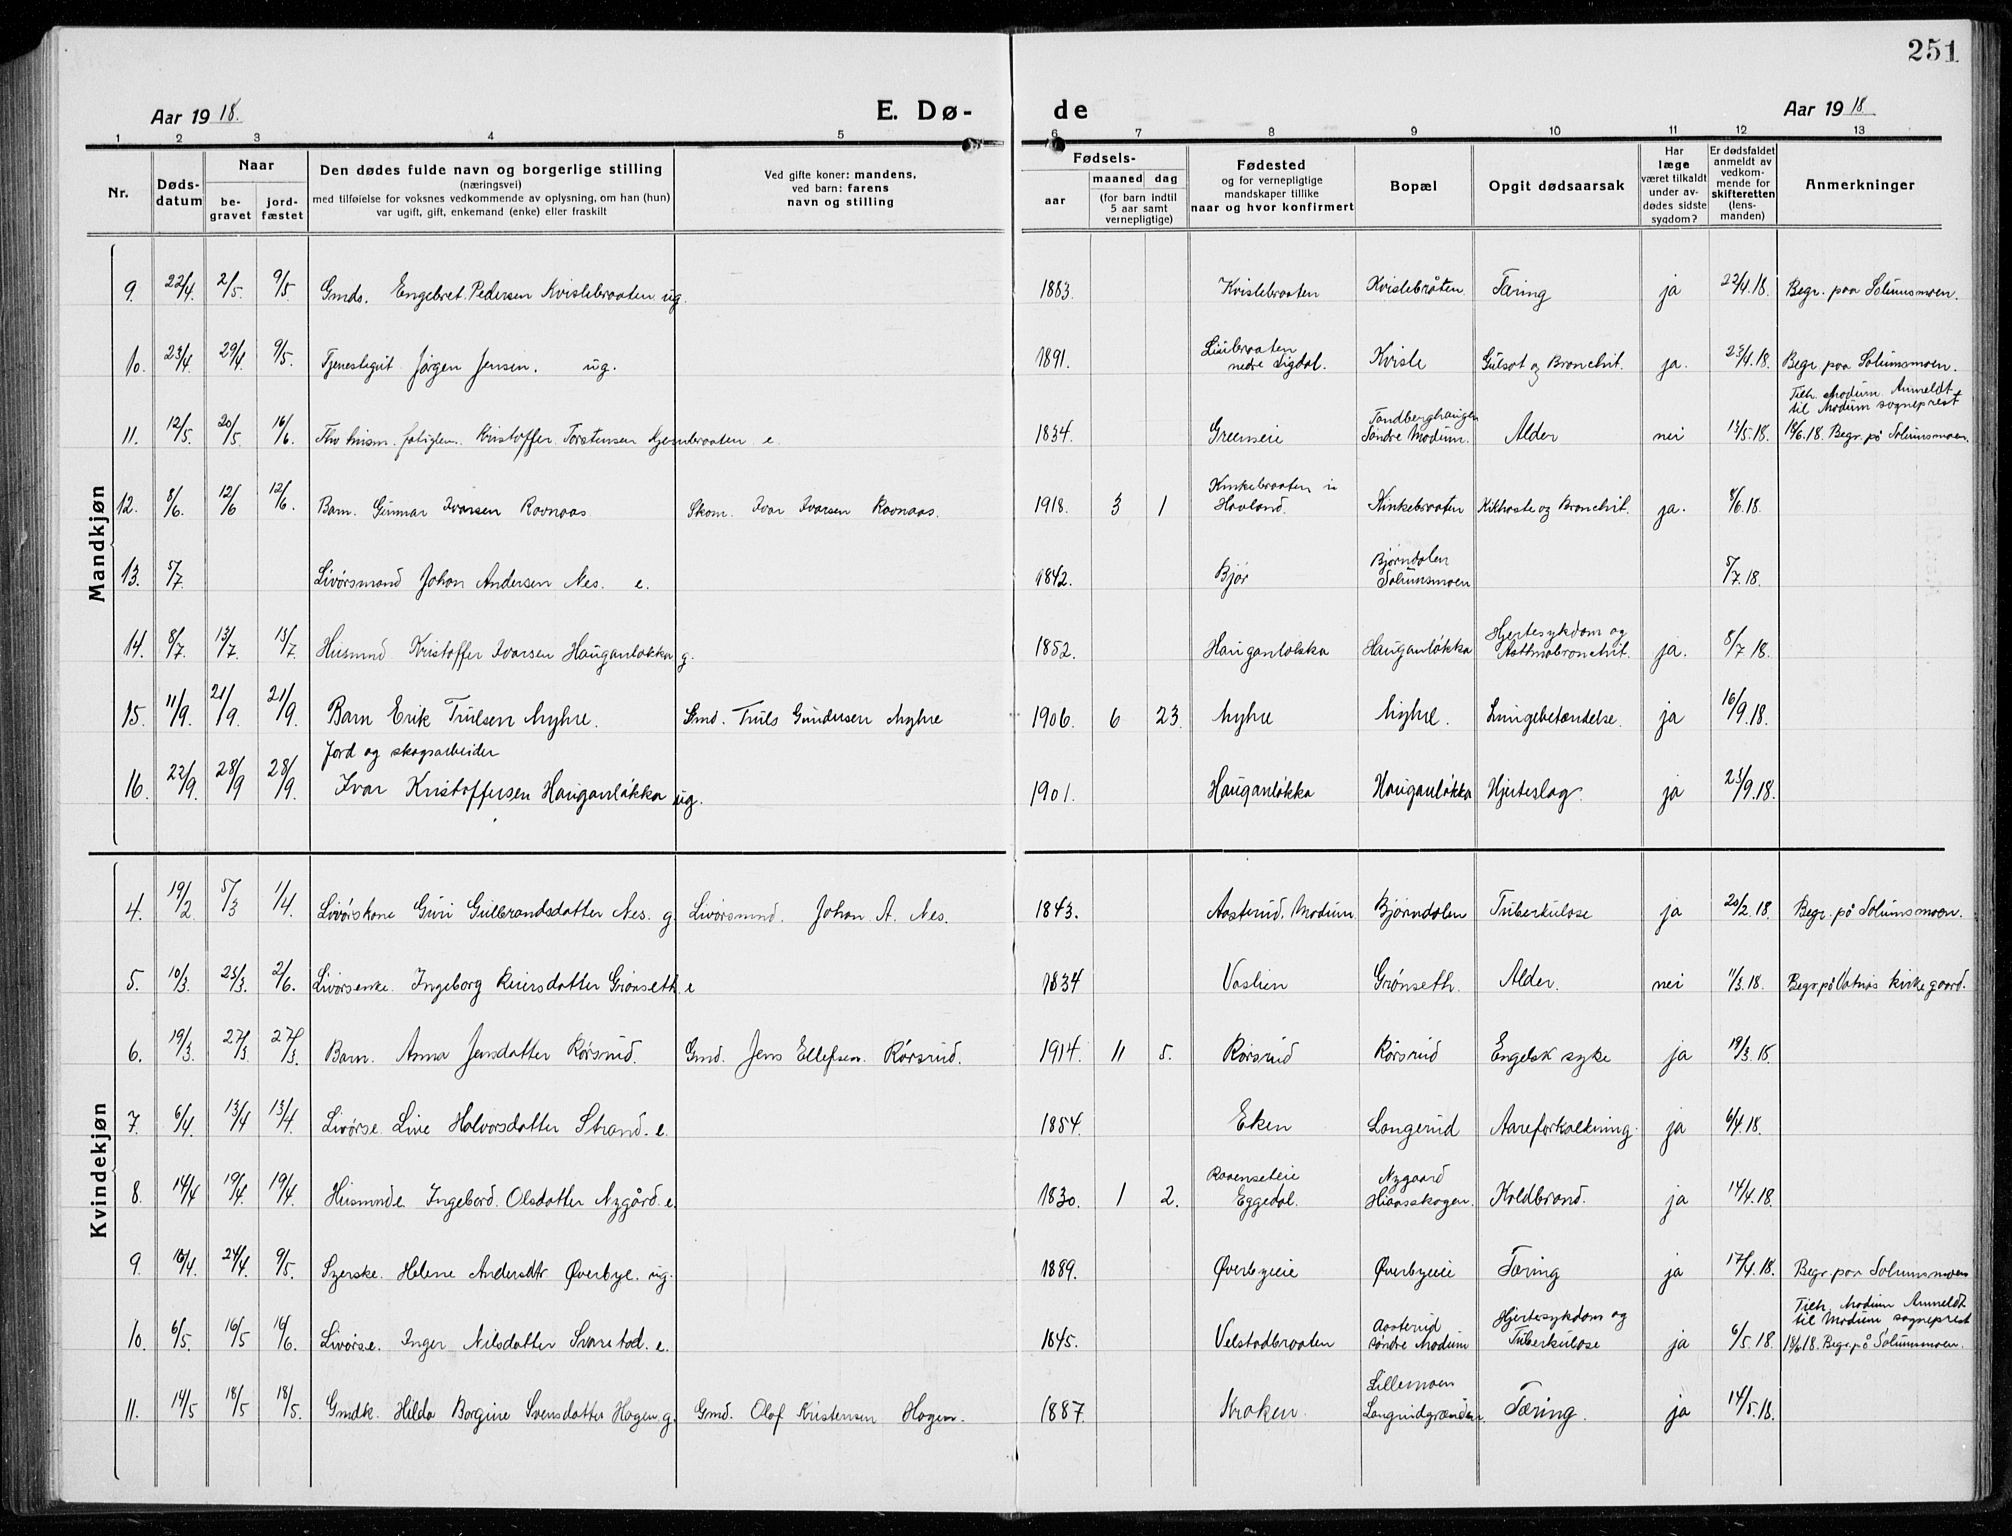 251
Aar 1918.
E. Dø-
de
Aar 1918
1 2 3 4 5 6 7 8 9 10 11 12 13
Nr.
Døds-
datum
Naar
be-
gravet
jord-
fæstet
Den dødes fulde navn og borgerlige stilling
(næringsvei)
med tilføielse for voksnes vedkommende av oplysning, om han (hun)
var ugift, gift, enkemand (enke) eller fraskilt
Ved gifte koner: mandens,
ved barn: farens
navn og stilling
Fødsels-
aar
maaned dag
(for barn indtil
5 aar samt
vernepligtige)
Fødested
og for vernepligtige
mandskaper tillike
naar og hvor konfirmert
Bopæl
Opgit dødsaarsak
Har
læge
været tilkaldt
under av-
dødes sidste
sygdom?
Er dødsfaldet
anmeldt av
vedkom-
mende for
skifteretten
(lens-
manden)
Anmerkninger
Mandkjøn
9. 22/4. 2/5. 9/5. Gmds. Engebret Pedersen Kvislebraaten ug. 1883. Kvislebraaten Kvislebråten. Tæring ja 22/4.18. Begr. paa Solumsmoen.
10. 23/4. 29/4. 9/5. Tjenestegut Jørgen Jensen. ug. 1891. nedre Sigdal. Kvisle Gulsot og Bronchit. ja. 23/4.18. Begr. paa Solumsmoen.
Tilh. Modum. Anmeldt
til Modum sogneprest
11. 12/5. 20/5. 16/6. Kristoffer Torstensen e. 1834. Greeneie Tandberghaugen
Søndre Modum. Alder nei 13/5.18. 18/6.18. Begr. på Solumsmoen.
12. 8/6. 12/6 12/6. Barn. Gunnar Ivarsen Ravnaas Skom. Ivar Ivarsen Ravnaas. 1918. 3 1 Kinkebraaten u
Haaland. Kinkebraaten Kikhoste og Bronchit. ja. 8/6.18.
13. 5/7. Livørsmand Johan Andersen Nes. e. 1842. Bjør Bjørndalen
Solumsmoen 5/7.18.
14. 8/7. 13/7. 13/7. Husmnd Kristoffer Ivarsen Hauganløkka g. 1852. Hauganløkka Hauganløkka Hjertesykdom og
Asthmabronchit. ja. 8/7 18.
15. 11/9. 21/9. 21/9. Barn Erik Trulsen Myhre. Gmd. Truls Gundersen Myhre 1906. 6 23. Myhre Myhre. Lungebetændelse. ja 16/9.18.
Jord og skogsarbeider
16. 22/9. 28/9 28/9. Ivar Kristoffersen Hauganløkka ug. 1901. Hauganløkka Hauganløkka Hjerteslag. ja 23/9.18.
Kvindekjøn
4. 19/2. 5/3 1/4. Livørskone Guri Gulbrandsdatter Nes. g. Livørsmnd. Johan A. Nes. 1843. Aasterud, Modum Bjørndalen Tuberkulose ja 20/2.18. Begr. på Solumsmoen.
5. 10/3. 23/3. 2/6. Livørsenke. Ingeborg Reiersdatter Grønseth. e 1834 Vaslien Grønseth. Alder. nei 11/3.18. Begr. på Vatnås kirkegaard.
6. 19/3. 27/3. 27/3. Barn. Anna Jensdatter Rørsrud. Gmd. Jens Ellefsen. Rørsrud. 1914. 11 5. Rørsrud Rørsrud Engelsk syke ja 19/3.18.
7. 6/4. 13/4 13/4. Livørse. Live Halvorsdatter Strand. e. 1854. Eken Langerud Aareforkalkning. ja 6/4.18.
8. 14/4 19/4. 19/4. Husmnde. Ingebord. Olsdatter Nygård. e. 1830. 1 2.
Eggedal. Nygaard
Hiaasskogen. Koldbrand. ja 14/4.18.
9. 16/4. 24/4. 9/5. Syerske. Helene Andersdtr Øverbye. ug. 1889. Øverbyeie Øverbyeie Tæring ja 17/4.18. Begr. paa Solumsmoen
Tilh. Modum Anmeldt
til Modum sogneprest
10. 6/5. 16/5 16/6. Livørse. Inger Nilsdatter Svarstad. e. 1845. Velstadbraaten Aasterud
søndre Modum Hjertesykdom og
Tuberkulose ja 6/5.18. 18/6.18. Begr. på Solumsmoen.
11. 14/5 18/5 18/5. Gmdk. Hilda Borgine Svensdatter Hagen. g. Gmd. Olaf Kristensen Hagen. 1887. Kroken. Lillemoen
Tæring. ja 14/5.18.